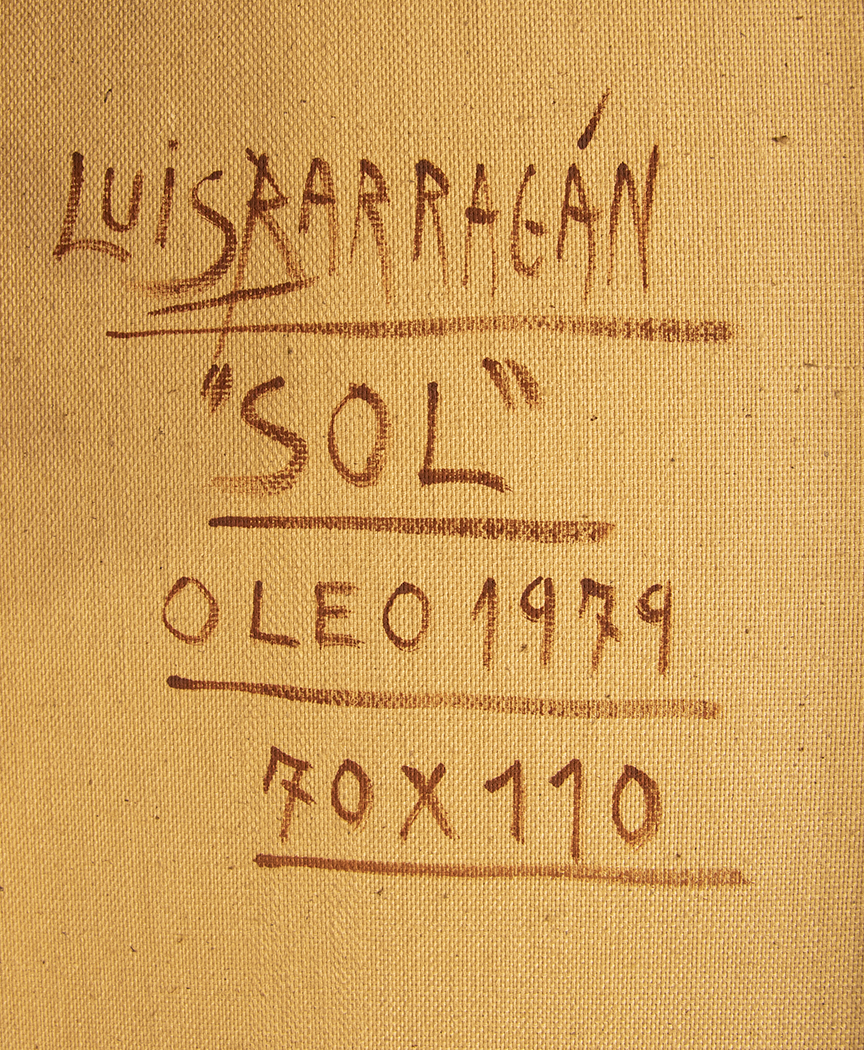 LUIS BARRAGÁN
"SOL"
OLEO 1979
70X110